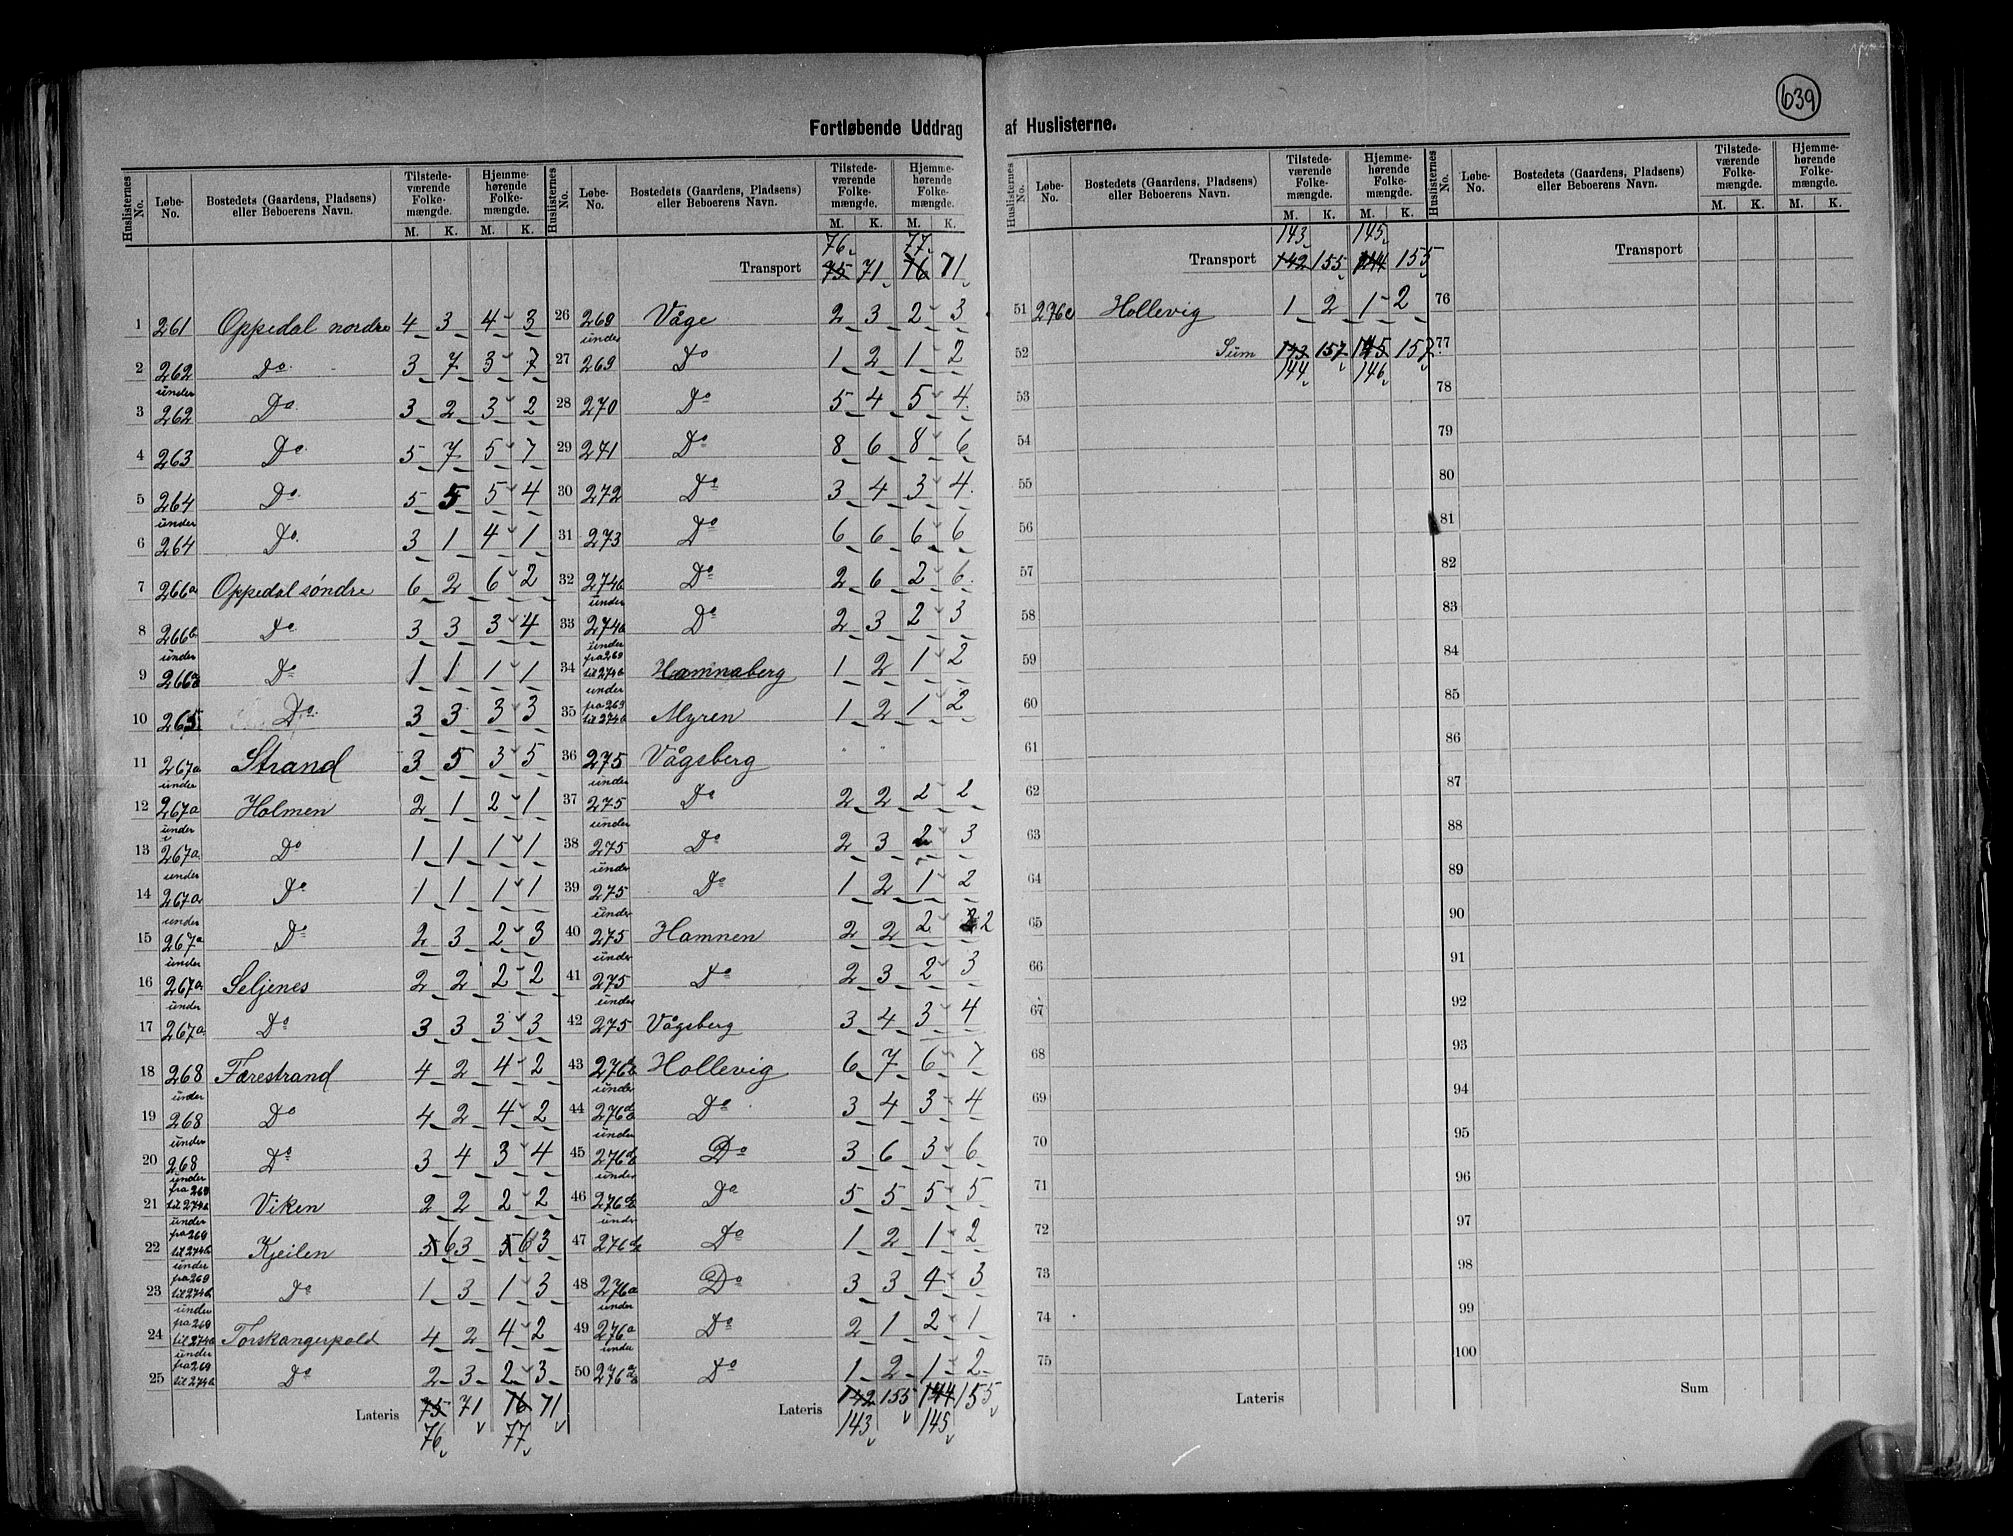 639
Fortløbende Uddrag af Huslisterne.
Huslisternes No. Løbe-No. Bostedets (Gaardens, Pladsens) eller Beboerens Navn. Tilstedeværende Folkemængde. M. K. Hjemmehørende Folkemængde. M. K.
1 261 Oppedal nordre 4 3 4 3
2 262 Do 3 7 3 7
3 under 262 Do 3 2 3 2
4 263 Do 5 7 5 7
5 264 Do 5 5 5 4
6 under 264 Do 3 1 4 1
7 266a Oppedal søndre 6 2 6 2
8 266b Do 3 3 3 4
9 under 266a Do 1 1 1 1
10 265 Do 3 3 3 3
11 267a Strand 3 5 3 5
12 under 267a Holmen 2 1 2 1
13 under 267a Do 1 1 1 1
14 under 267a Do 1 1 1 1
15 under 267a Do 2 3 2 3
16 under 267a Seljenes 2 2 2 2
17 under 267a Do 3 3 3 3
18 268 Farestrand 4 2 4 2
19 under 268 Do 4 2 4 2
20 under 268 Do 3 4 3 4
21 under fra 269 til 274b Viken 2 2 2 2
22 under fra 269 til 274b Kjeilen 5 6 3 5 6 3
23 under fra 269 til 274b Do 1 3 1 3
24 under fra 269 til 274b Torskangerpold 4 2 4 2
25 under fra 269 til 274b Do 2 3 2 3
Lateris 75 71 76 71
76 77
Huslisternes No. Løbe-No. Bostedets (Gaardens, Pladsens) eller Beboerens Navn. Tilstedeværende Folkemængde. M. K. Hjemmehørende Folkemængde. M. K.
76 77
Transport 75 71 76 71
26 269 Våge 2 3 2 3
27 under 269 Do 1 2 1 2
28 270 Do 5 4 5 4
29 271 Do 8 6 8 6
30 272 Do 3 4 3 4
31 273 Do 6 6 6 6
32 274b Do 2 6 2 6
33 under 274b Do 2 3 2 3
34 under fra 269 til 274b Hamnaberg 1 2 1 2
35 under fra 269 til 274b Myren 1 2 1 2
36 275 Vågsberg " "
37 under 275 Do 2 2 2 2
38 under 275 Do 2 3 2 3
39 under 275 Do 1 2 1 2
40 under 275 Hamnen 2 2 2 2
41 under 275 Do 2 3 2 3
42 under 275 Vågsberg 3 4 3 4
43 Hollevig 6 7 6 7
44 under Do 3 4 3 4
45 under Do 3 6 3 6
46 under Do 5 5 5 5
47 under Do 1 2 1 2
48 276a Do 3 3 4 3
49 under 276a Do 2 1 2 1
50 under Do 1 2 1 2
Lateris 142 155 144 155
143 145
Huslisternes No. Løbe-No. Bostedets (Gaardens, Pladsens) eller Beboerens Navn. Tilstedeværende Folkemængde. M. K. Hjemmehørende Folkemængde. M. K.
143 145
Transport 142 155 144 155
51 276c Hollevig 1 2 1 2
52 Sum 143 157 145 157
144 146
53
54
55
56
57
58
59
60
61
62
63
64
65
66
67
68
69
70
71
72
73
74
75
Lateris
Huslisternes No. Løbe-No. Bostedets (Gaardens, Pladsens) eller Beboerens Navn. Tilstedeværende Folkemængde. M. K. Hjemmehørende Folkemængde. M. K.
Transport
76
77
78
79
80
81
82
83
84
85
86
87
88
89
90
91
92
93
94
95
96
97
98
99
100
Sum